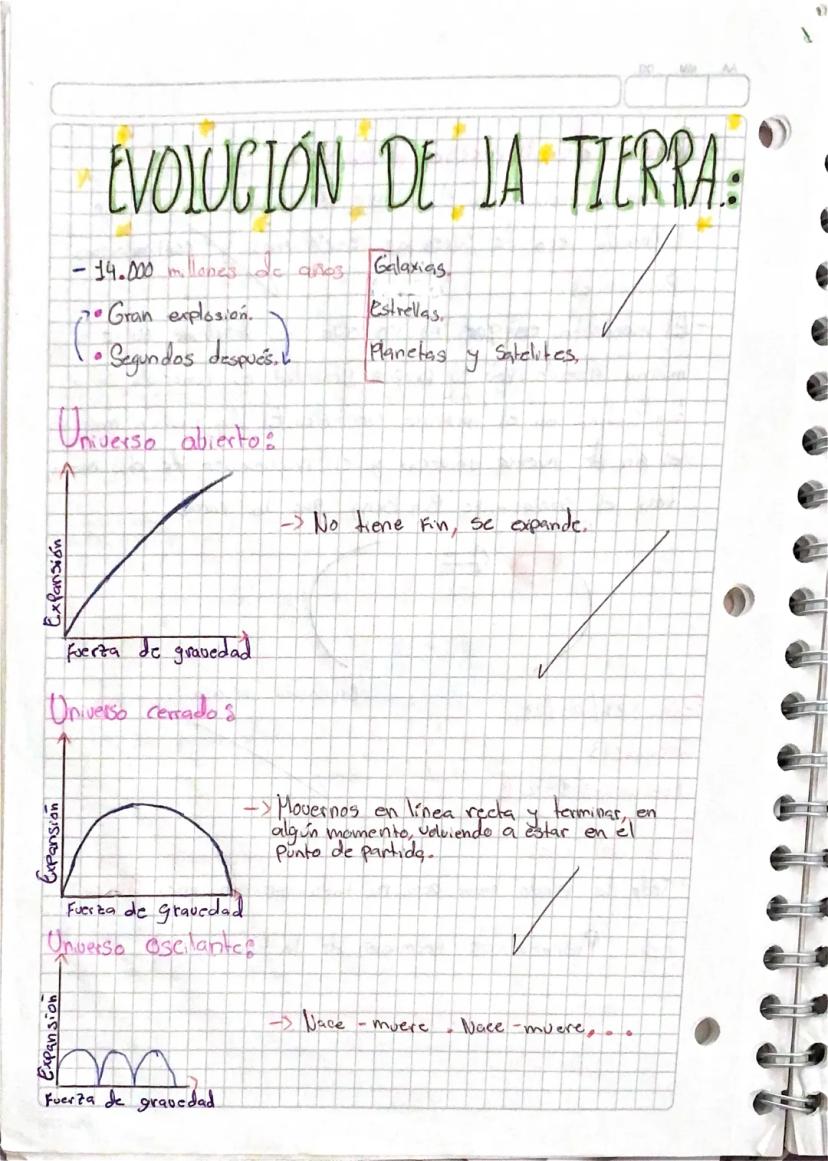 EVOLUCIÓN DE LA TIERRA:
- 14.000 millones de años
• Gran explosión.
• Segundos después.
Galaxias.
Estrellas.
Planetas y Satelites.
Universo abierto:
Expansión
Fuerza de gravedad
-> No tiene Fin, se expande.
Universo cerrado:
Expansión
Fuerza de gravedad
-> Movernos en línea recta y terminar, en
algún momento, volviendo a estar en el
punto de partida.
Universo oscilante:
Expansión
Fuerza de gravedad
-> Nace - muere . Nace - muere, . . .